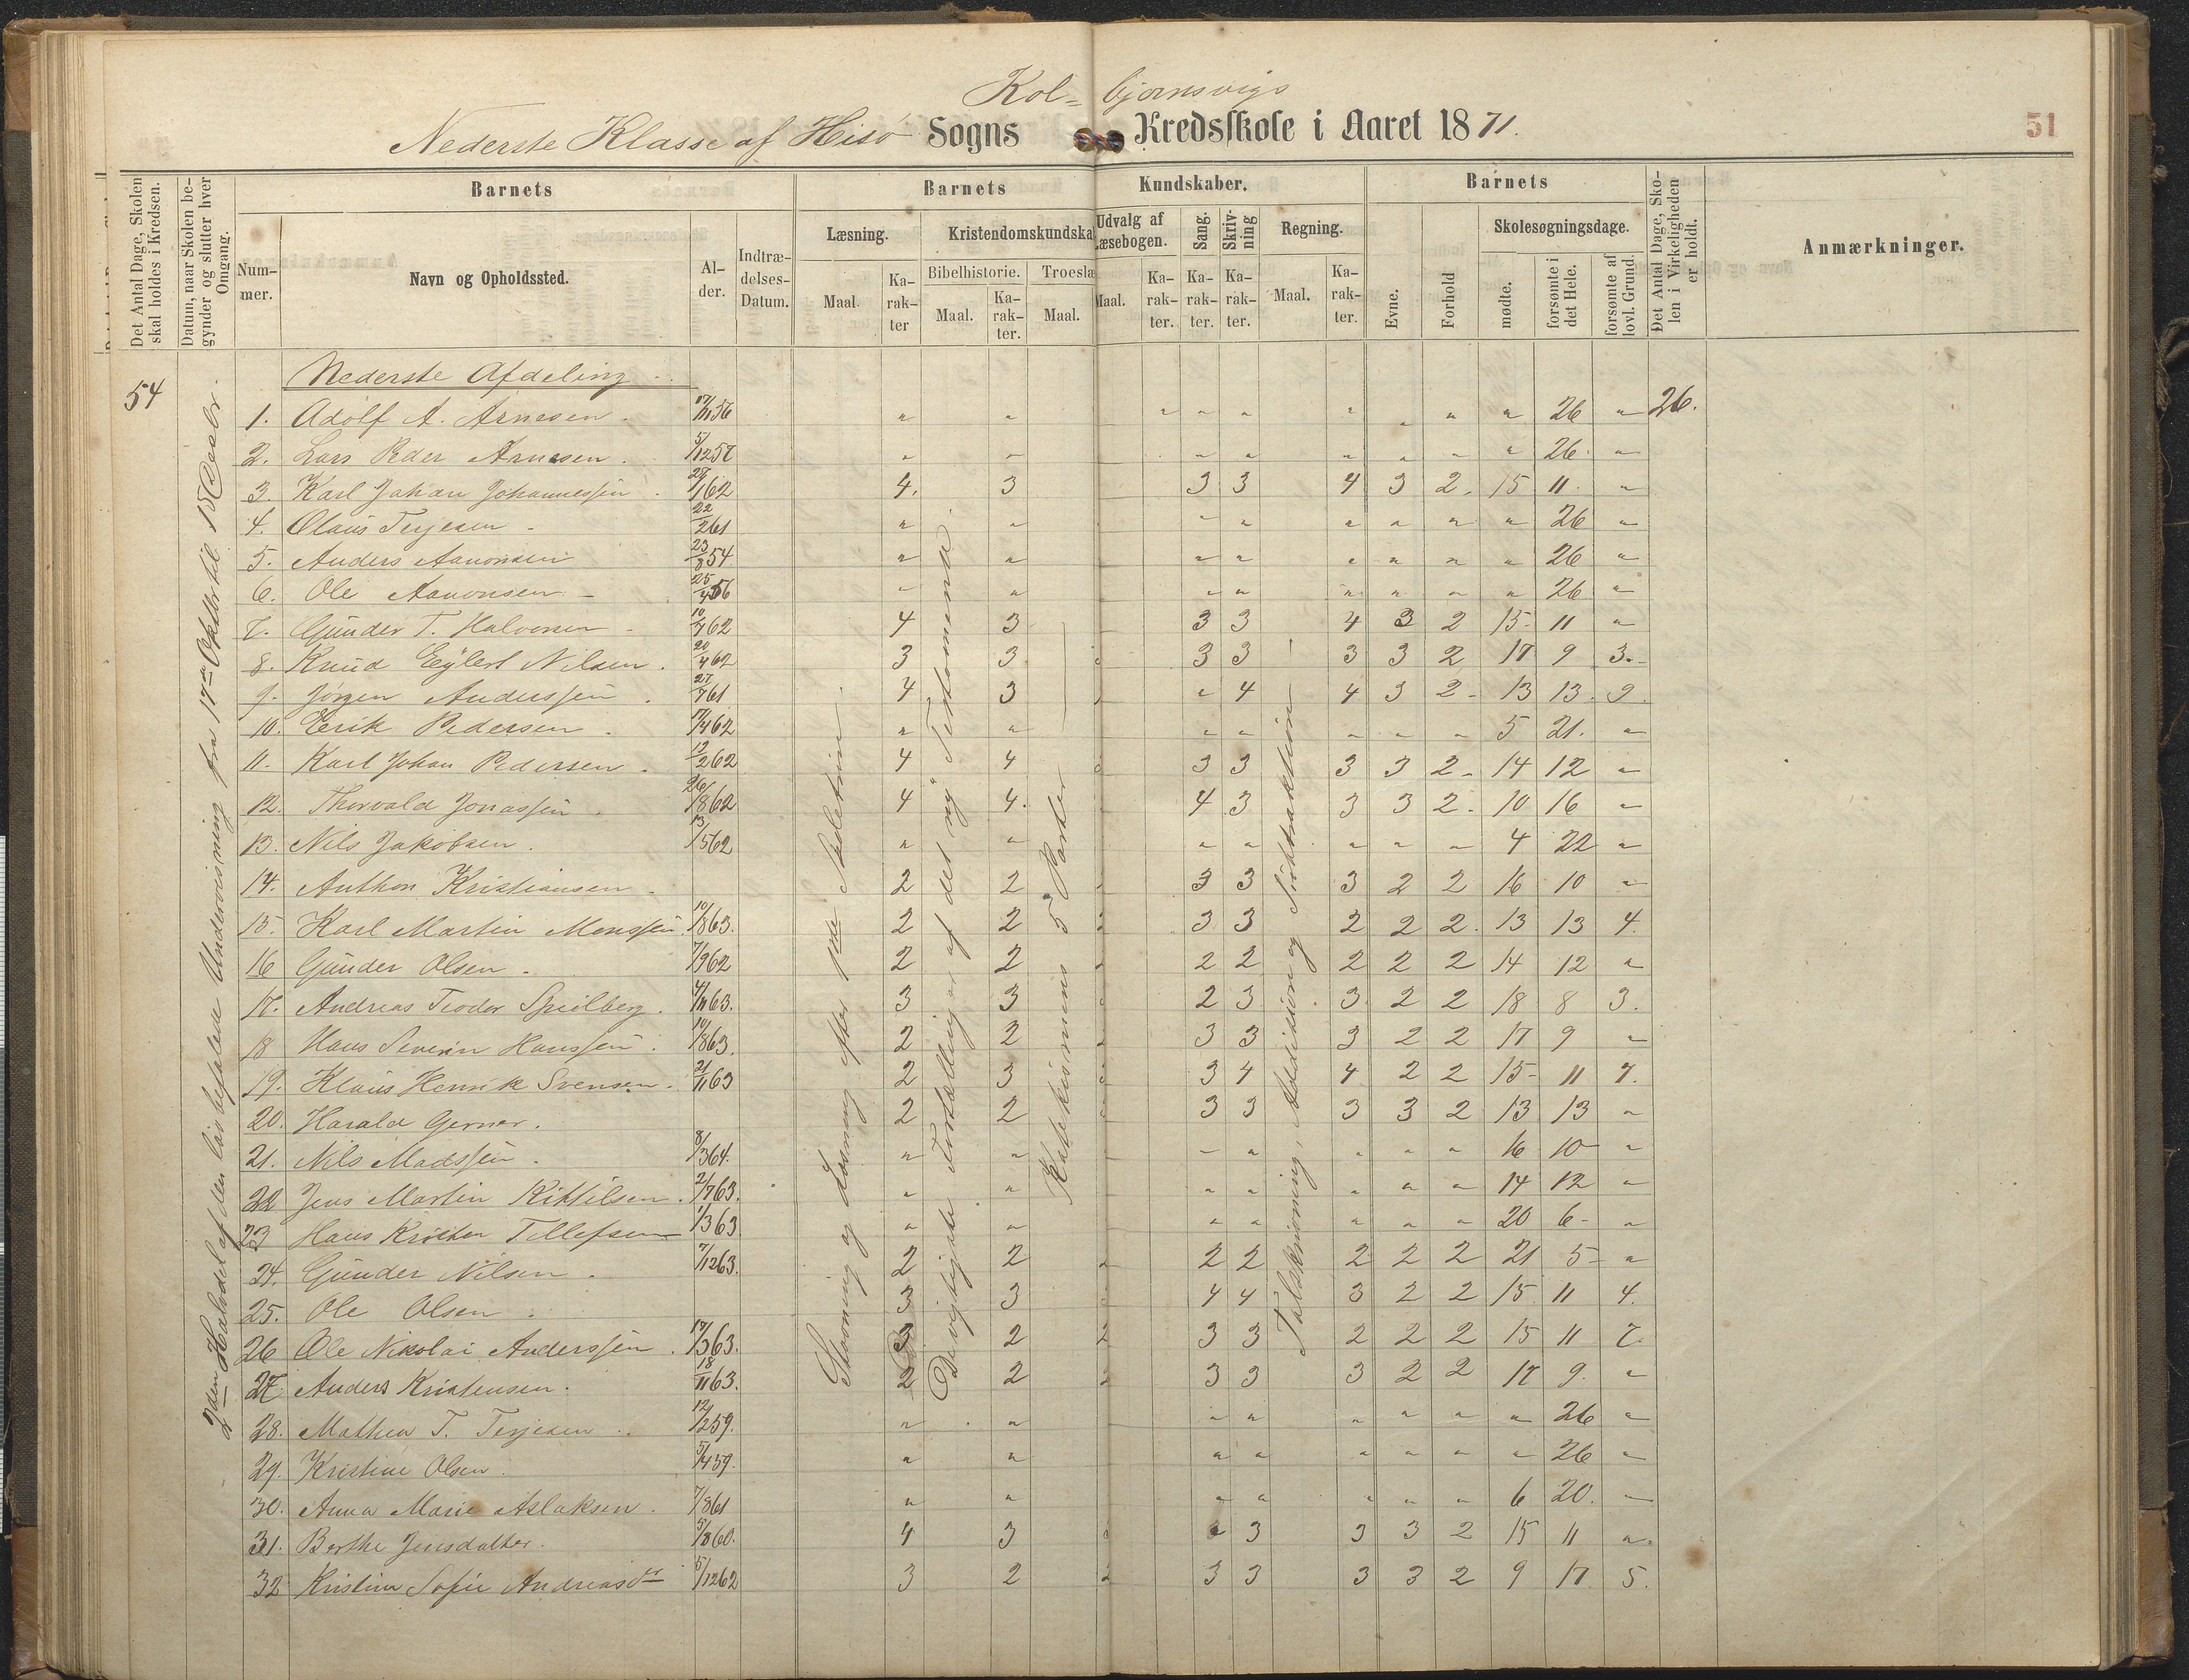 Kol= bjørnsvigs
Nederste Klasse af Hisø Sogns Kredsskole i Aaret 1871. 51
Det Antal Dage, Skolen skal holdes i Kredsen.
Datum, naar Skolen begynder og slutter hver Omgang.
Barnets
Nummer.
Navn og Opholdssted.
Alder.
Indtrædelses-Datum.
Barnets Kundskaber.
Læsning.
Maal.
Karakter
Kristendomskundska
Bibelhistorie.
Maal.
Karakter.
Troeslæ
Maal.
Udvalg af Læsebogen.
Maal.
Karakter.
Sang.
Karakter.
Skrivning
Karakter.
Regning.
Maal.
Karakter.
Barnets
Evne.
Forhold
Skolesøgningsdage.
mødte.
forsømte i det Hele.
forsømte af lovl. Grund.
Det Antal Dage, Skolen i Virkeligheden er holdt.
Anmærkninger.
54
2den Halvdel af den lovbefalede Undervisning fra 17de Oktbr til 15 Decbr.
Stavning og Læsning efter
Devigtigste Fortællinger af det ny Testamena.
Katekismens 5 Parter
Talskrivning, Addition og Subtraktion
Nederste Afdeling.
1. Adolf A. Arnesen. 17/11 56 " " " " " " " " " 26 " 26.
2. Lars Peder Arnesen. 5/12 57 " " " " " " " " 26. "
3. Karl Johan Johannessen. 28/1 62 4. 3 3 3 4 3 2. 15 11. "
4. Olaus Terjesen. 22/2 61 " " " " " " " " 26 "
5. Anders Aanonsen 23/8 54 " " " " " " " " 26 "
6. Ole Aanonsen 25/4 56 " " " " " " " " 26 "
7. Gunder T. Halvorsen 10/7 62 4 3 3 3 4 3 2 15 11 "
8. Knud Eylert Nilsen. 20/4 62 3 3 3 3 3 3 2 17 9 3.
9. Jørgen Anderssen. 27/7 61 4 3 " 4 4 3 2 13 13. 9.
10. Eerik Pedersen. 17/4 62 " " " " " " " 5 21. "
11. Karl Johan Pedersen. 12/2 62 4 4 3 3 3 3 2 14 12 "
12. Thorvald Jonassen. 26/8 62 4 4. 4 3 3 3 2. 10 16 "
13. Nils Jakobsen. 13/5 62 " " " " " " " 4 22 "
14. Anthon Kristiansen. 2 2 3 3 3 2 2 16 10 "
15. Karl Martin Monssen. 10/8 63. 2 2 2 3 3 2 2 2. 13 13 4.
16 Gunder Olsen. 7/9 62 2 2 2 2 2 2 2 14 12 "
17. Andreas Teodor Speilberg. 4/11 63. 3 3 2 3 3 2 2 18 8 3.
18 Hans Severin Hanssen. 10/8 63. 2 2 3 3 3 2 2 17 9 "
19. Klaus Henrik Svensen. 21/11 63 2 3 3 4 4 2 2 15 11 7.
20. Harald Gerner. 2 2 3 3 3 3 2 13 13 "
21. Nils Madssen. 8/3 64. " " " " " " " 16 10 "
22 Jens Martin Kittilsen. 2/7 63. " " " " " " " 14 12 "
23 Hans Krister Tellefsen 1/3 63 " " " " " " " 20 6 "
24. Gunder Nilsen. 7/12 63. 2 2 2 2 2 2 2 21 5 "
25. Ole Olsen. 3 3 4 4 3 2 2 15 11 4.
26 Ole Nikolai Anderssen. 17/3 63. 2 2 3 3 2 2 2 15 11 7.
27. Anders Kristensen. 18/11 63. 2 2 2 3 3 3 2 2 17 9. "
28. Mathea T. Terjesen. 12/2 59. " " " " " " " " 26 "
29. Kristine Olsen. 5/4 59. " " " " " " " " 26 "
30. Anna Marie Aslaksen. 7/8 61 " " " " " " " 6 20. "
31. Berthe Jensdatter. 5/8 60. 4 3 " 3 3 3 2 15 11 ".
32 Kristine Sofie Andreasdtr 5/12 62 3 2 2 3 3 3 3 2 9 17 5.